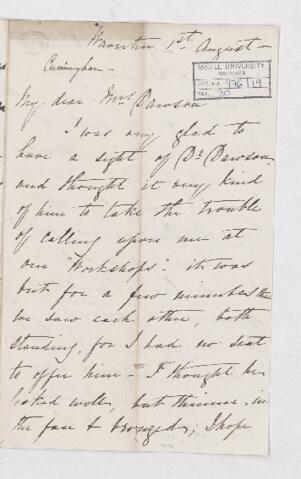 1st August -
Cuningham -
McGILL UNIVERSITY
ARCHIVES
ACC. NO. 
REF. 30
My dear Mrs Dawson
I was very glad to
have a sight of Dr Dawson,
and thought it very kind
of him to take the trouble
of calling upon me at
our "Workshops" - it was
but for a few minutes that
we saw each other, both
standing, for I had no seat
to offer him - I thought he
looked well, but thinner in
the face & bronzed; I hope